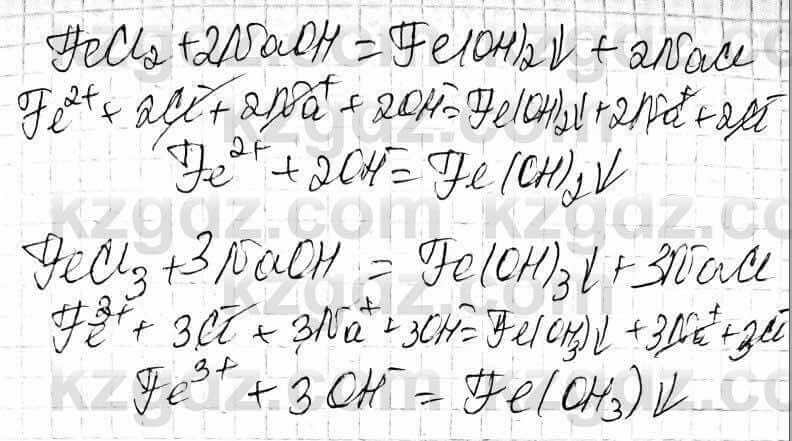 FeCl₂ + 2NaOH = Fe(OH)₂↓ + 2NaCl
Fe²⁺ + 2Cl⁻ + 2Na⁺ + 2OH⁻ = Fe(OH)₂↓ + 2Na⁺ + 2Cl⁻
Fe²⁺ + 2OH⁻ = Fe(OH)₂↓
kzgdz.com
FeCl₃ + 3NaOH = Fe(OH)₃↓ + 3NaCl
Fe³⁺ + 3Cl⁻ + 3Na⁺ + 3OH⁻ = Fe(OH)₃↓ + 3Na⁺ + 3Cl⁻
Fe³⁺ + 3OH⁻ = Fe(OH₃)↓